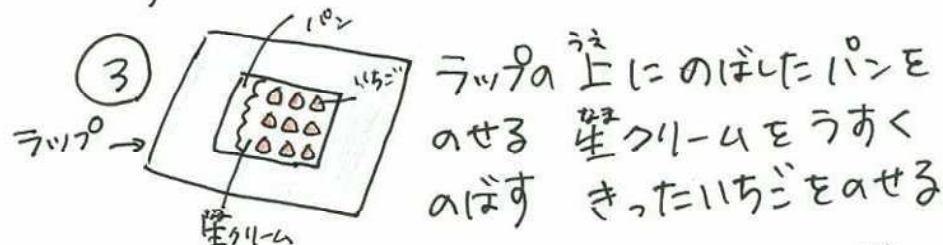 パン
③
いちご
ラップ→
生クリーム
ラップの上にのばしたパンを
のせる 生クリームをうすく
のばす きったいちごをのせる